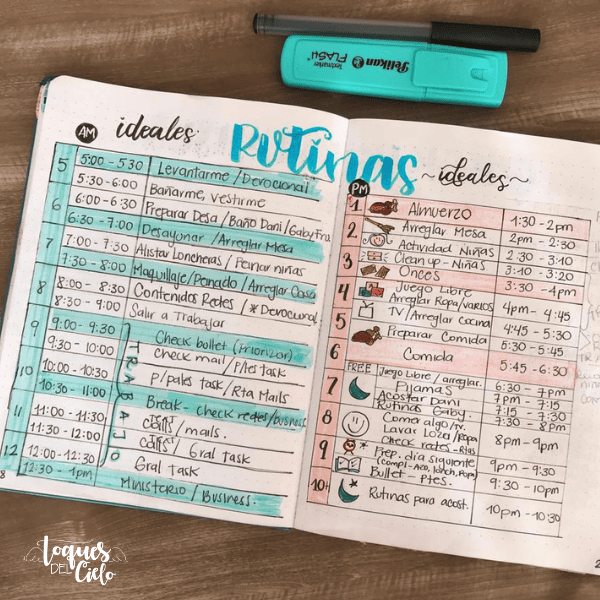 Pelikan
Textmarker
FLASH
AM
ideales
Rutinas
~ideales~
5
5:00 - 5:30 Levantarme / Devocional
5:30 - 6:00 Bañarme, vestirme
6
6:00 - 6:30 Preparar Desa / Baño Dani / Gaby
6:30 - 7:00 Desayunar / Arreglar Mesa
7
7:00 - 7:30 Alistar Loncheras / Peinar niñas
7:30 - 8:00 Maquillaje / Peinado / Arreglar Casa
8
8:00 - 8:30 Contenidos Redes / *Devocional
8:30 - 9:00 Salir a Trabajar
TRABAJO
9
9:00 - 9:30 Check bullet (Priorizar)
9:30 - 10:00 check mail / Ptes task
10
10:00 - 10:30 P/pales task / Rta Mails
10:30 - 11:00 Break - check redes / business
11
11:00 - 11:30 / mails.
11:30 - 12:00 / Gral task
12
12:00 - 12:30 Gral task
12:30 - 1pm Ministerio / Business.
8
PM
1 Almuerzo 1:30 - 2pm
2 Arreglar Mesa 2pm - 2:30
Actividad Niñas 2:30 - 3:10
3 Clean up - Niñas 3:10 - 3:20
Onces 3:30 - 4pm
4 Juego Libre
Arreglar Ropa/varios 4pm - 4:45
5 TV / Arreglar Cocina 4:45 - 5:30
Preparar Comida 5:30 - 5:45
6 Comida 5:45 - 6:30
FREE Juego Libre / arreglar. 6:30 - 7pm
7 Pijamas 7pm - 7:15
Acostar Dani 7:15 - 7:30
Rutinas Gaby 7:30 - 8pm
8 Comer algo / tv.
Lavar Loza / Ropa 8pm - 9pm
check redes - Rtas
9 Prep. dia siguiente 9pm - 9:30
(Compl - Aco, lonch, Ropa)
Bullet - Ptes. 9:30 - 10pm
10+ Rutinas para acost. 10pm - 10:30
2
Toques
DEL
Cielo